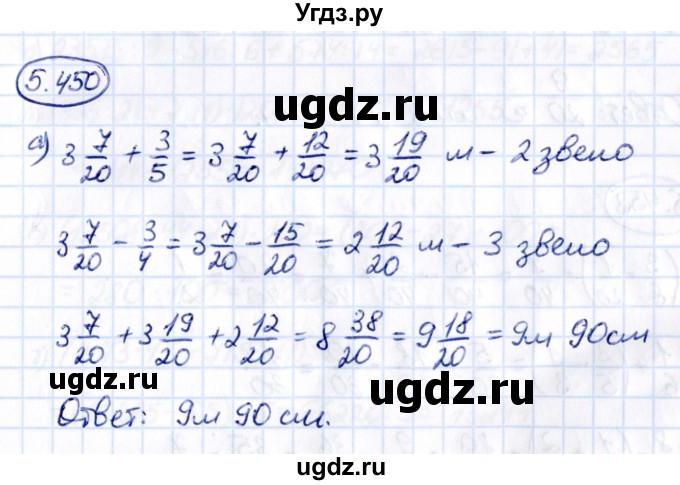 ГДЗ.ру
5.450
ugdz.ru
а) 3 7/20 + 3/5 = 3 7/20 + 12/20 = 3 19/20 м - 2 звено
3 7/20 - 3/4 = 3 7/20 - 15/20 = 2 12/20 м - 3 звено
3 7/20 + 3 19/20 + 2 12/20 = 8 38/20 = 9 18/20 = 9м 90см
ugdz.ru
ugdz.ru
Ответ: 9м 90см.
ugdz.ru